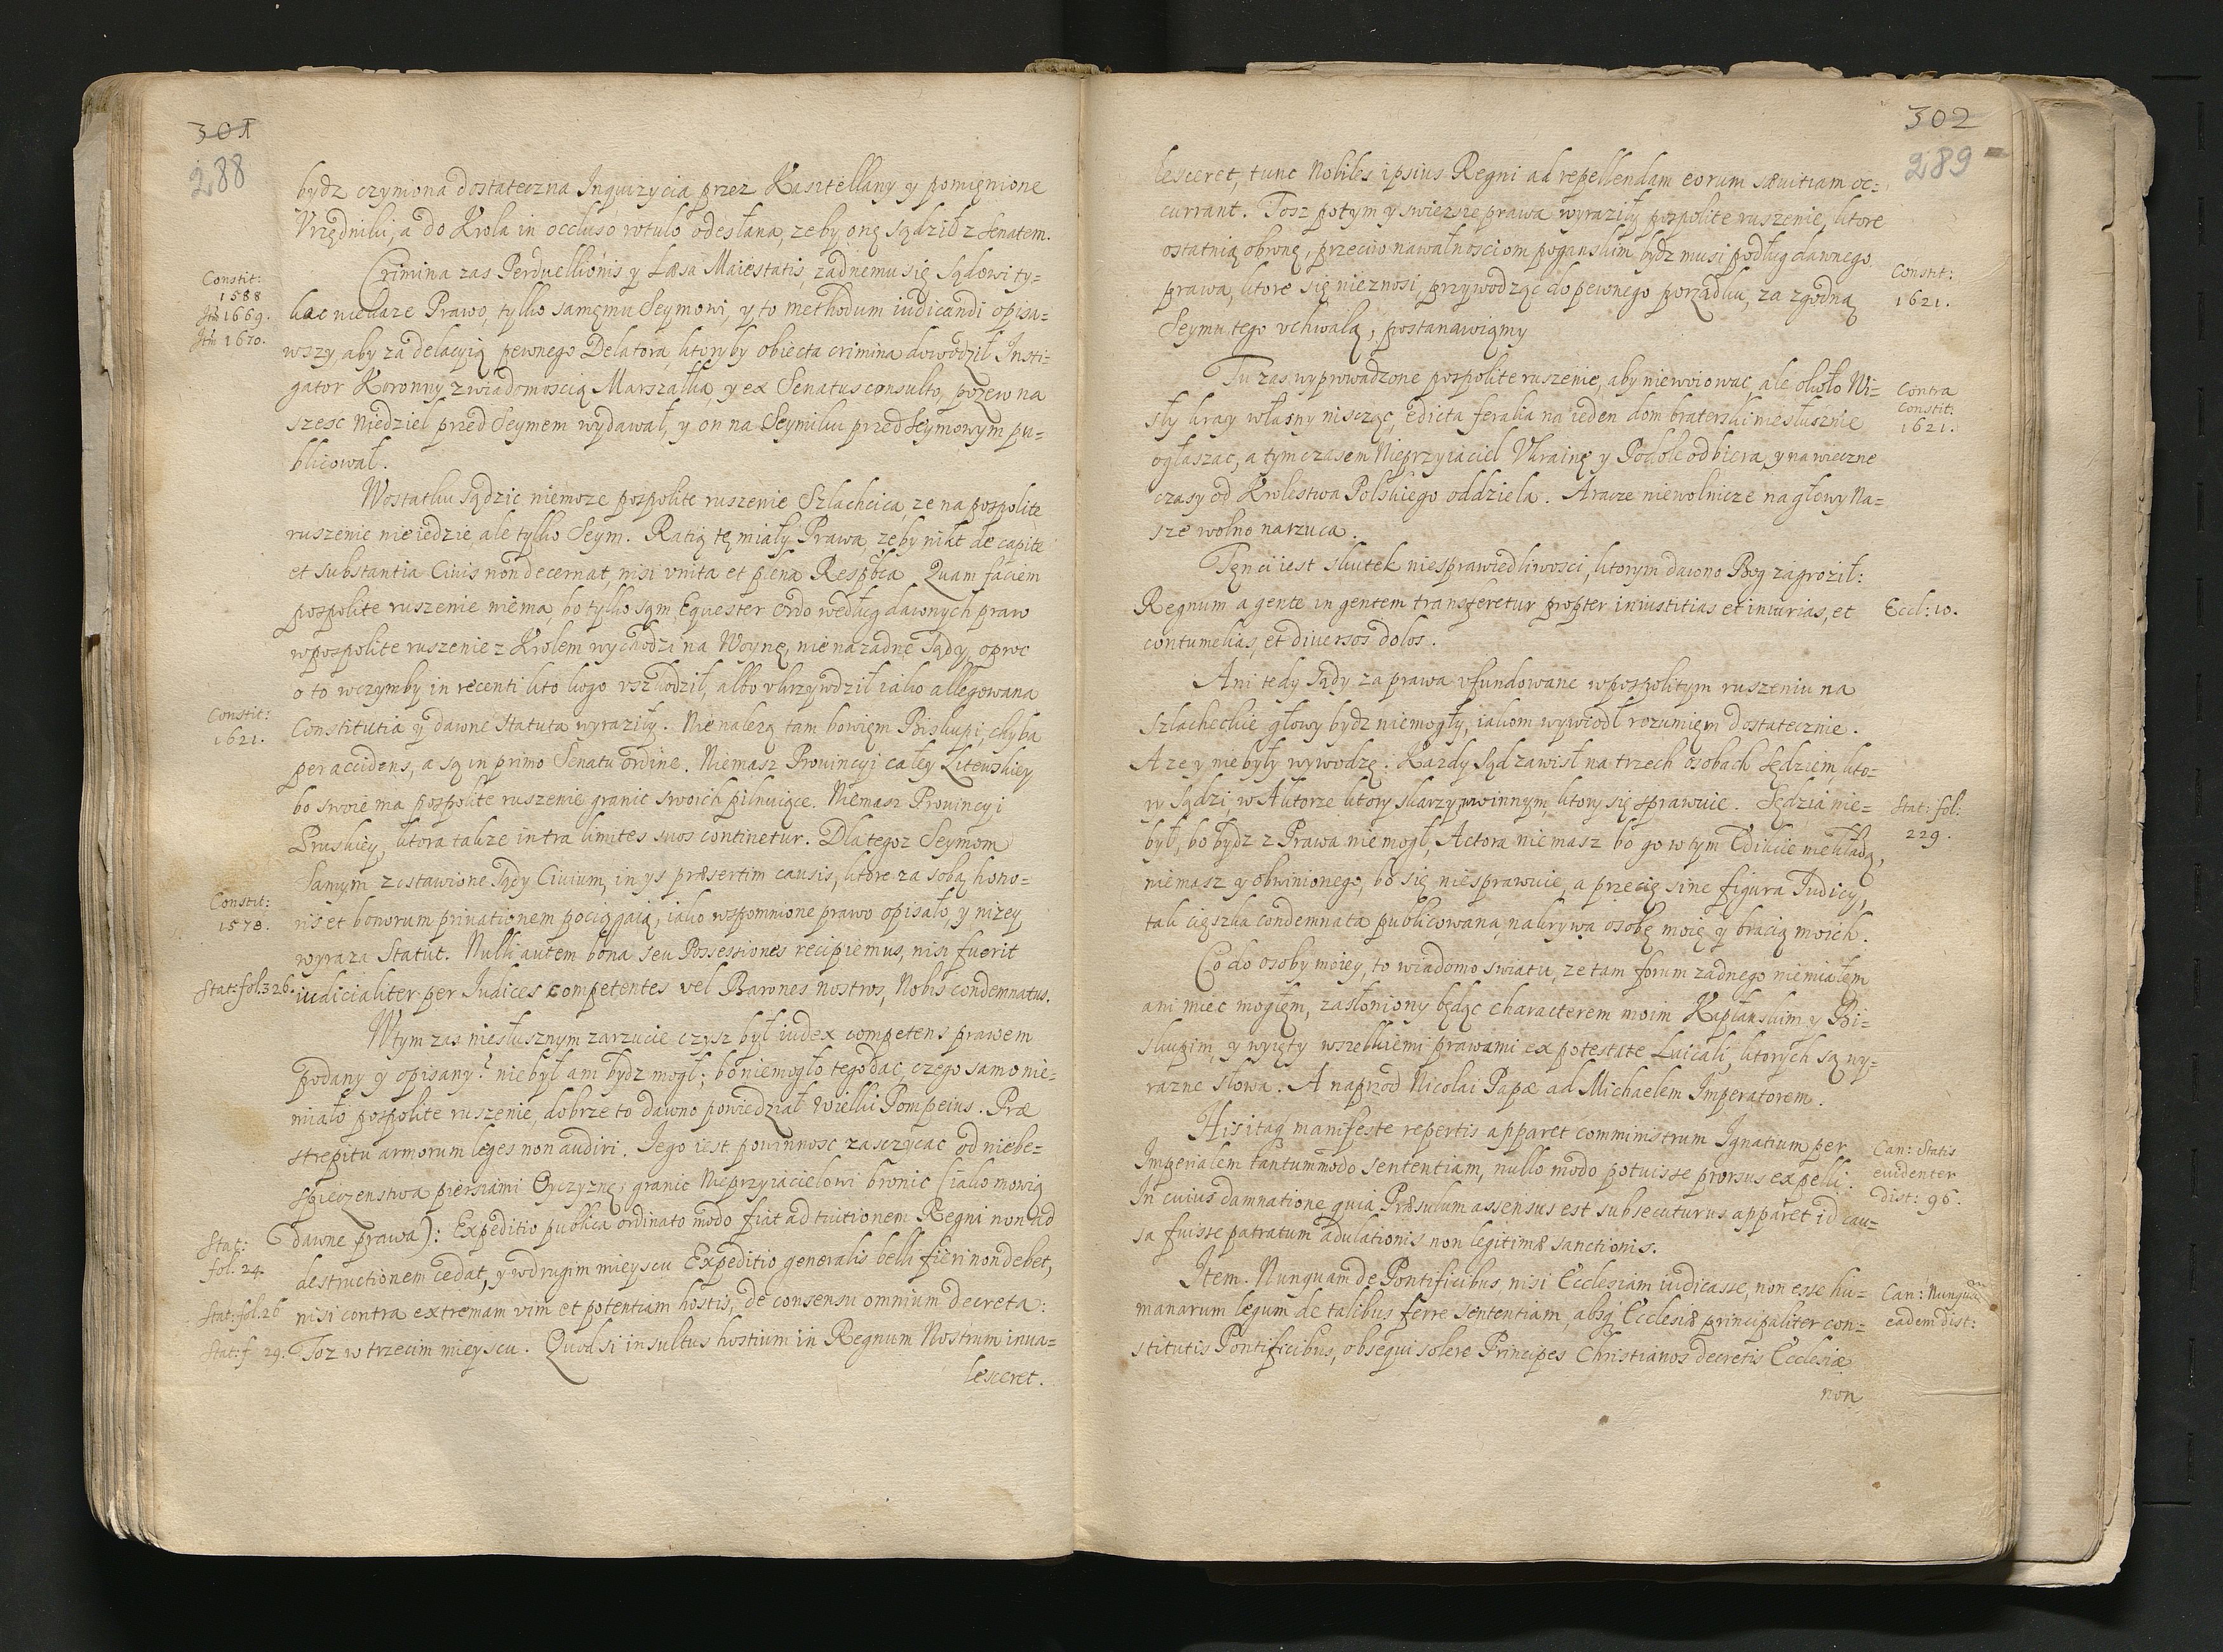 301
288
bydz czyniona dostateczna Inquizycia przez Kasztellany y pomięnione
Vrzędniki, a do Krola in occluso rotulo odesłana, zeby onę sądził z Senatem.
Crimina zas Perduellionis y Læsæ Maiestatis, zadnemu się sądowi ty-
Constit:
1588
Itm 1669.
Itm 1670.
kac niekaze Prawo, tylko samęmu Seymowi, y to methodum iudicandi opisa-
wszy, aby za delacyią pewnego Delatora, ktoryby obiecta crimina dowodził, Insti-
gator Koronny z wiadomoscią Marszałka, y ex Senatus consulto, pozew na
szesc Niedziel przed Seymem wydawał, y on na Seymiku przed Seymowym pu-
blicował.
Wostatku sądzic niemoze pospolite ruszenie Szlachcica, ze na pospolite
ruszenie nieiedzie, ale tylko Seym. Ratią tę miały Prawa, zeby niht de capite
et substantia Ciuis non decernat, nisi vnita et plena Respbca. Quam faciem
pospolite ruszenie niema, bo tylko sąm Equester Ordo według dawnych praw
w pospolite ruszenie z Krolem wychodzi na Woynę, nie na zadne sądy, oproc
o to w czymby in recenti kto kogo vszkodził, albo vkrzywdził iako allegowana
Constit:
1621.
Constitutia y dawne Statuta wyraziły. Nie nalezą tam bowięm Biskupi, chyba
per accidens, a są in primo Senatu ordine. Niemasz Prouincyi całey Litewskiey
bo swoie ma pospolite ruszenie granic swoich pilnuiące. Niemasz Prouincyi
Pruskiey, ktora takze intra limites suos continetur. Dlategoz Seymom
samym zostawione sądy Ciuium, in ys præsertim causis, ktore za sobą hono-
Constit:
1578.
ris et bonorum priuationem pociągaią, iako wspomnione prawo opisało, y nizey
wyraza Statut. Nulli autem bona seu Possessiones recipiemus, nisi fuerit
Stat: fol: 326.
iudicialiter per Iudices competentes vel Barones nostros, Nobis condemnatus.
Wtym zas niesłusznym zarzucie czysz był iudex competens prawem
podany y opisany? nie był ani bydz mogł; bo niemogło tego dac, czego samo nie-
miało pospolite ruszenie, dobrze to dawno powiedział Wielki Pompeius. Præ
strepitu armorum leges non audiri. Iego iest powinnosc zasczycac od niebe-
spieczenstwa piersiami Oyczyznę, granic Nieprzyiacielowi bronic (iako mowią
Stat:
fol. 24.
dawne prawa): Expeditio publica ordinato modo fiat ad tuitionem Regni non ad
destructionem cedat, y w drugim mieyscu Expeditio generalis belli fieri non debet,
Stat: fol. 26
nisi contra extremam vim et potentiam hostis, de consensu omnium decreta:
Stat: f 29.
Toz w trzecim mieyscu. Quod si insultus hostium in Regnum Nostrum inua-
lesceret.
302
289
lesceret, tunc Nobiles ipsius Regni ad repellendam eorum sæuitiam oc-
currant. Tosz potym y swiezsze prawa wyraziły pospolite ruszenie, ktore
ostatnią obroną, przeciw nawałnosciom poganskim bydz musi podług dawnego
Constit:
1621.
prawa, ktore się nieznosi, przywodząc do pewnego porządku, za zgodną
Seymu tego vchwałą, postanawiąmy
Tu zas wyprowadzone pospolite ruszenie, aby niewoiowac, ale około Wi-
Contra
Constit:
1621.
sły kray własny niscząc, edicta feralia na ieden dom braterski niesłusznie
ogłaszac, a tym czasem Nieprzyiaciel Vkrainę y Podole odbiera, y na wieczne
czasy od Krolestwa Polskiego oddziela. Aracze niewolnicze na głowy Na-
sze wolno narzuca.
Tęn ci iest skutek niesprawiedliwosci, ktorym dawno Bog zagroził:
Regnum a gente in gentem transferetur propter iniustitias et iniurias, et
Eccl: 10.
contumelias, et diuersos dolos.
Ani tedy sądy za prawa vfundowane w pospolitym ruszeniu na
szlacheckie głowy bydz niemogły, iakom wywiodł rozumięm dostatecznie.
A ze y nie były wywodzę: Kazdy sąd zawisł na trzech osobach sędziem, kto-
ry sądzi, w Aktorze ktory skarzy, winnym, ktory się sprawuie. Sędzia nie-
Stat: fol:
229.
był, bo bydz z Prawa niemogł, Actora niemasz bo go w tym Edikcie niekładą,
niemasz y obwinionego, bo się niesprawuie, a przecię sine figura Iudicy,
tak cięszka condemnata publicowana, nakrywa osobę moię y bracią moich.
Co do osoby moiey, to wiadomo swiatu, ze tam forum zadnego niemiałem
ani miec mogłęm, zasłoniony będąc characterem moim Kapłanskim y Bi-
skupim, y wyięty wszelkiemi prawami ex potestate Laicali, ktorych są wy-
razne słowa. A naprzod Nicolai Papæ ad Michaelem Imperatorem.
His itaq manifeste repertis apparet comministrum Ignatium per
Can: Statis
euidenter
dist: 96.
Imperialem tantummodo sententiam, nullo modo potuisse prorsus expelli.
In cuius damnatione quia Præsulum assensus est subsecuturus, apparet id cau-
sa fuisse patratum adulationis non legitimæ sanctionis.
Item. Nunquam de Pontificibus, nisi Ecclesiam iudicasse, non esse hu-
Can: Nunquam
eadem dist:
manarum legum de talibus ferre sententiam, absq Ecclesiæ principaliter con-
stitutis Pontificibus, obsequi solere Principes Christianos decretis Ecclesiæ
non